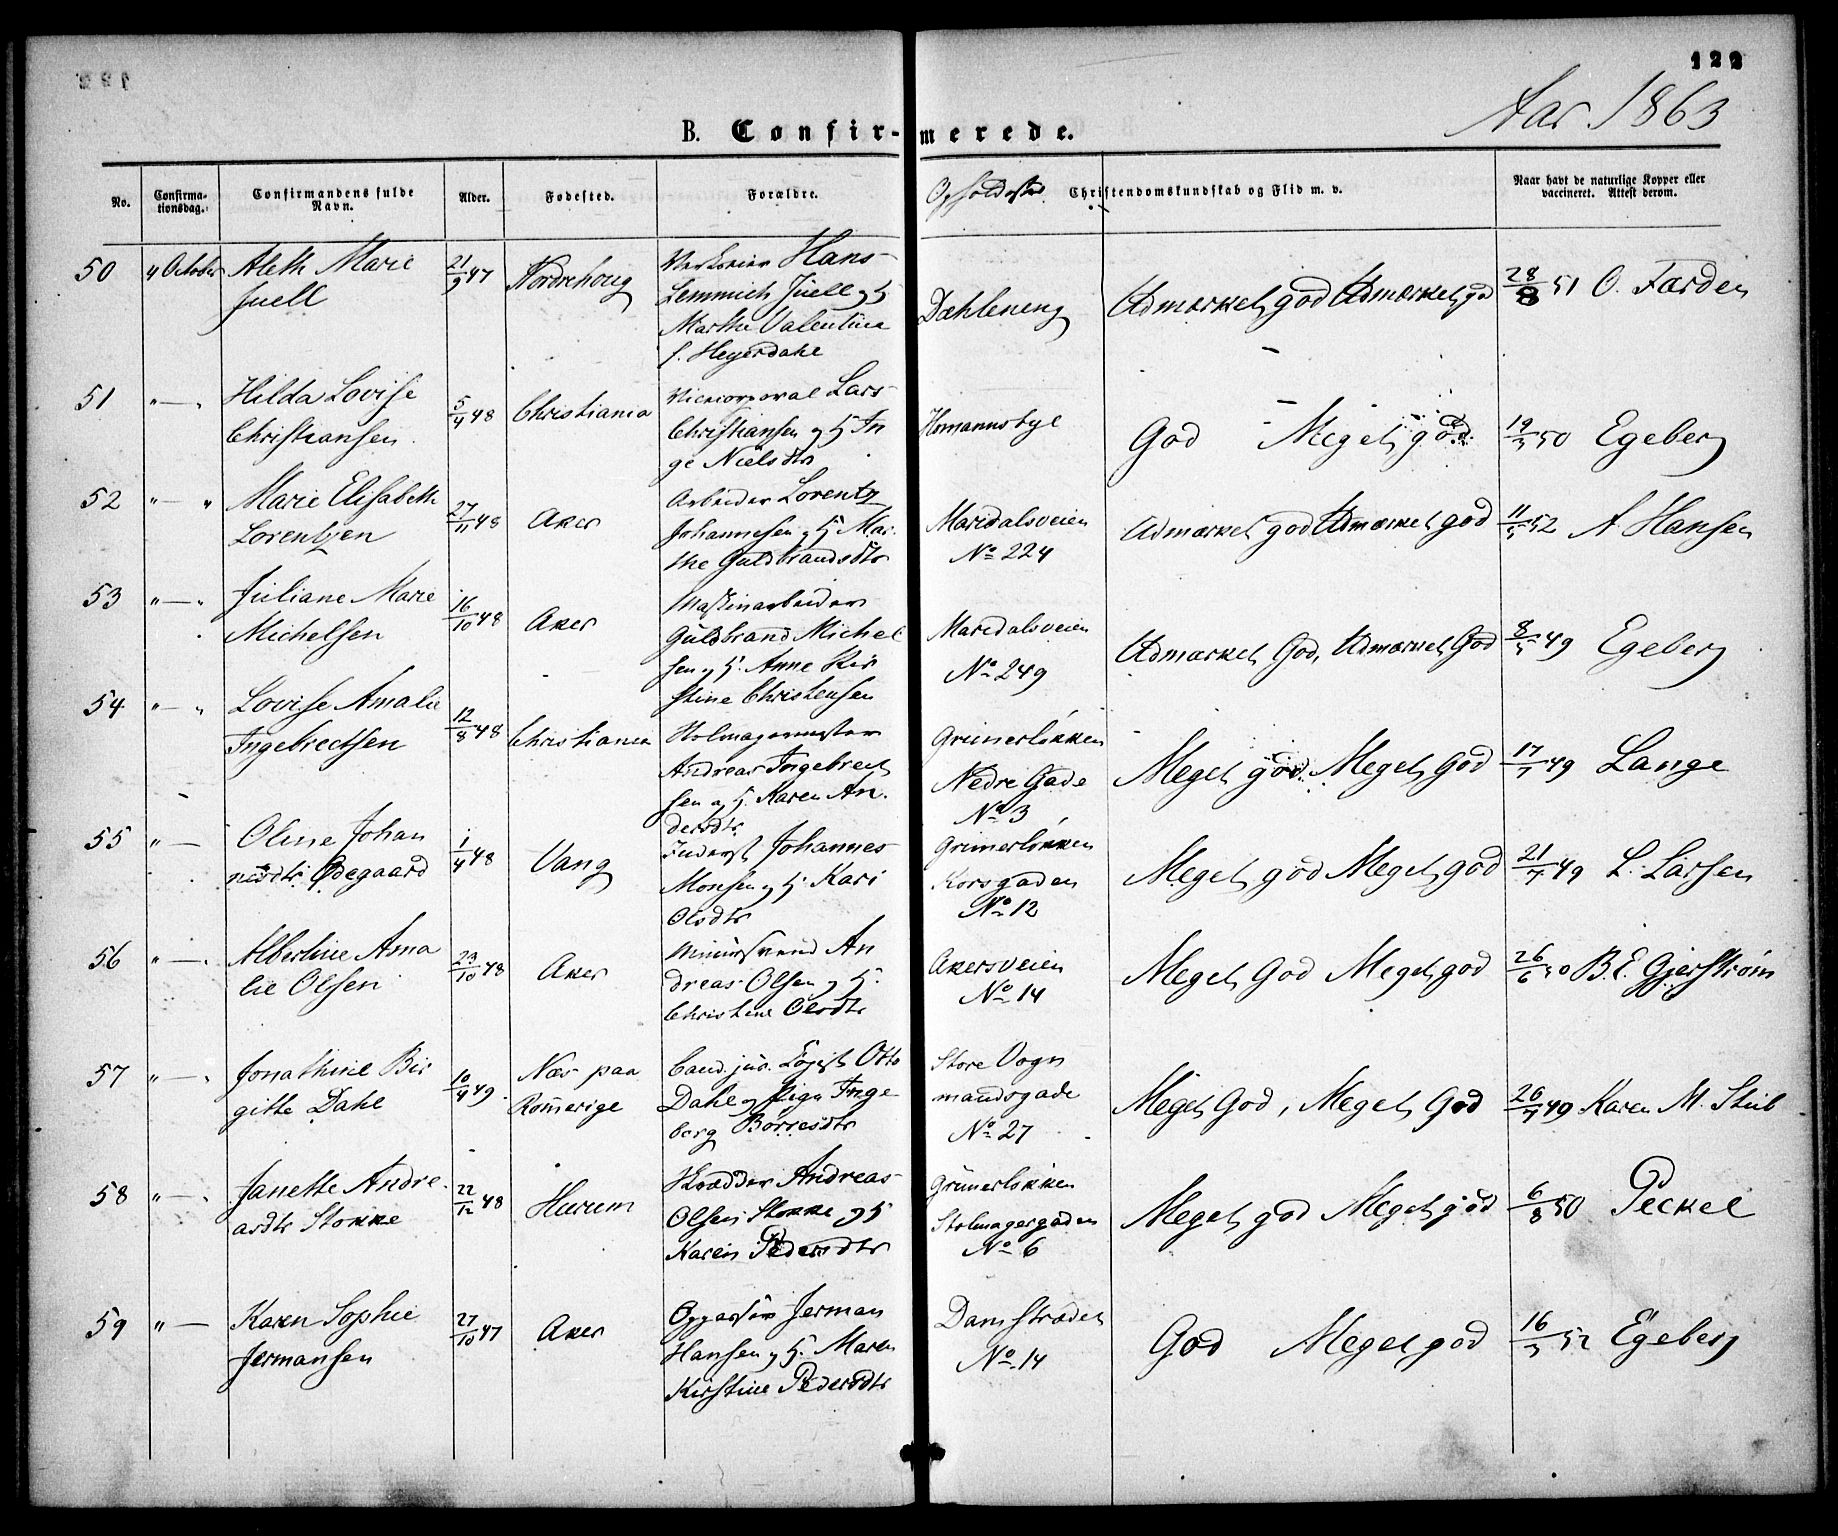 122
Aar 1863
B. Confir-merede.
No.
Confirma-
tionsdag.
Confirmandens fulde
Navn.
Alder.
Fødested.
Forældre.
Opholdssted
Christendomskundskab og Flid m. v.
Naar havt de naturlige Kopper eller
vaccineret. Attest derom.
50 4 October Aleth Marie
Juell
21/9 47
Nordrehoug
Hans
Lemmich Juell og H
Marthe Valentine
f. Heyerdahl
Dæhleneng
Udmærket god Udmærket god
28/8 51 O. Færden
51 " — " Hilda Lovise
Christiansen
5/4 48
Christiania
Vicecorporal Lars
Christiansen og H In
ge Nielsdtr
Homannsbye
God Meget god
19/5 50 Egeberg
52 " — " Marie Elisabeth
Lorentzen
27/11 48
Aker
Arbeider Lorentz
Johannesen og H. Mar
the Guldbrandsdtr
Maridalsveien
No 224
Udmærket god Udmærket god
11/5 52 A. Hansen
53 " — " Juliane Marie
Michelsen
16/10 48
Aker
Maskinarbeider
Guldbrand Michel
sen og H. Anne Kir
stine Christensen
Maridalsveien
No 249
Udmærket God, Udmærket God
8/5 49 Egeberg
54 " — " Lovise Amalie
Ingebrectsen
12/8 48
Christiania
Stolmagermester
Andreas Ingebrect
sen og H. Karen An
dersdtr
Grünerløkken
Nedre Gade
No 3
Meget god. Meget God
17/7 49 Lange
55 " — Oline Johan
nesdtr Ødegaard
1/4 48
Vang
Inderst Johannes
Monsen og H. Kari
Olsdtr
Grünerløkken
Korsgaden
No 12
Meget god Meget god
21/7 49 L. Larsen
56 " — " Albertine Ama
lie Olsen
23/10 48
Aker
Muursvend An
dreas Olsen og H.
Christine Olsdtr
Akersveien
No 14
Meget God Meget god
26/6 50 B. E. Gjerstrøm
57 " — " Jonathine Bir
gitte Dahl
10/4 49
Næs paa
Romerige
Cand. jur. Logist Otto
Dahl og Pige Inge
borg Børresdtr
Store Vogn
mandsgade
No 27
Meget God, Meget God
26/7 49 Karen M. Stub
58 " — " Janette Andre
asdtr Stokke
22/12 48
Hurum
Skrædder Andreas
Olsen Stokke og H
Karen Pedersdtr
Grünerløkken
Stolmagergaden
No 6
Meget god Meget god
6/8 50 Peckel
59 " — Karen Sophie
Jermansen
27/10 47
Aker
Opsynsmand Jerman
Hansen og H. Maren
Kirstine Pedersdtr
Damstrædet
No 14
God Meget god
16/5 52 Egeberg